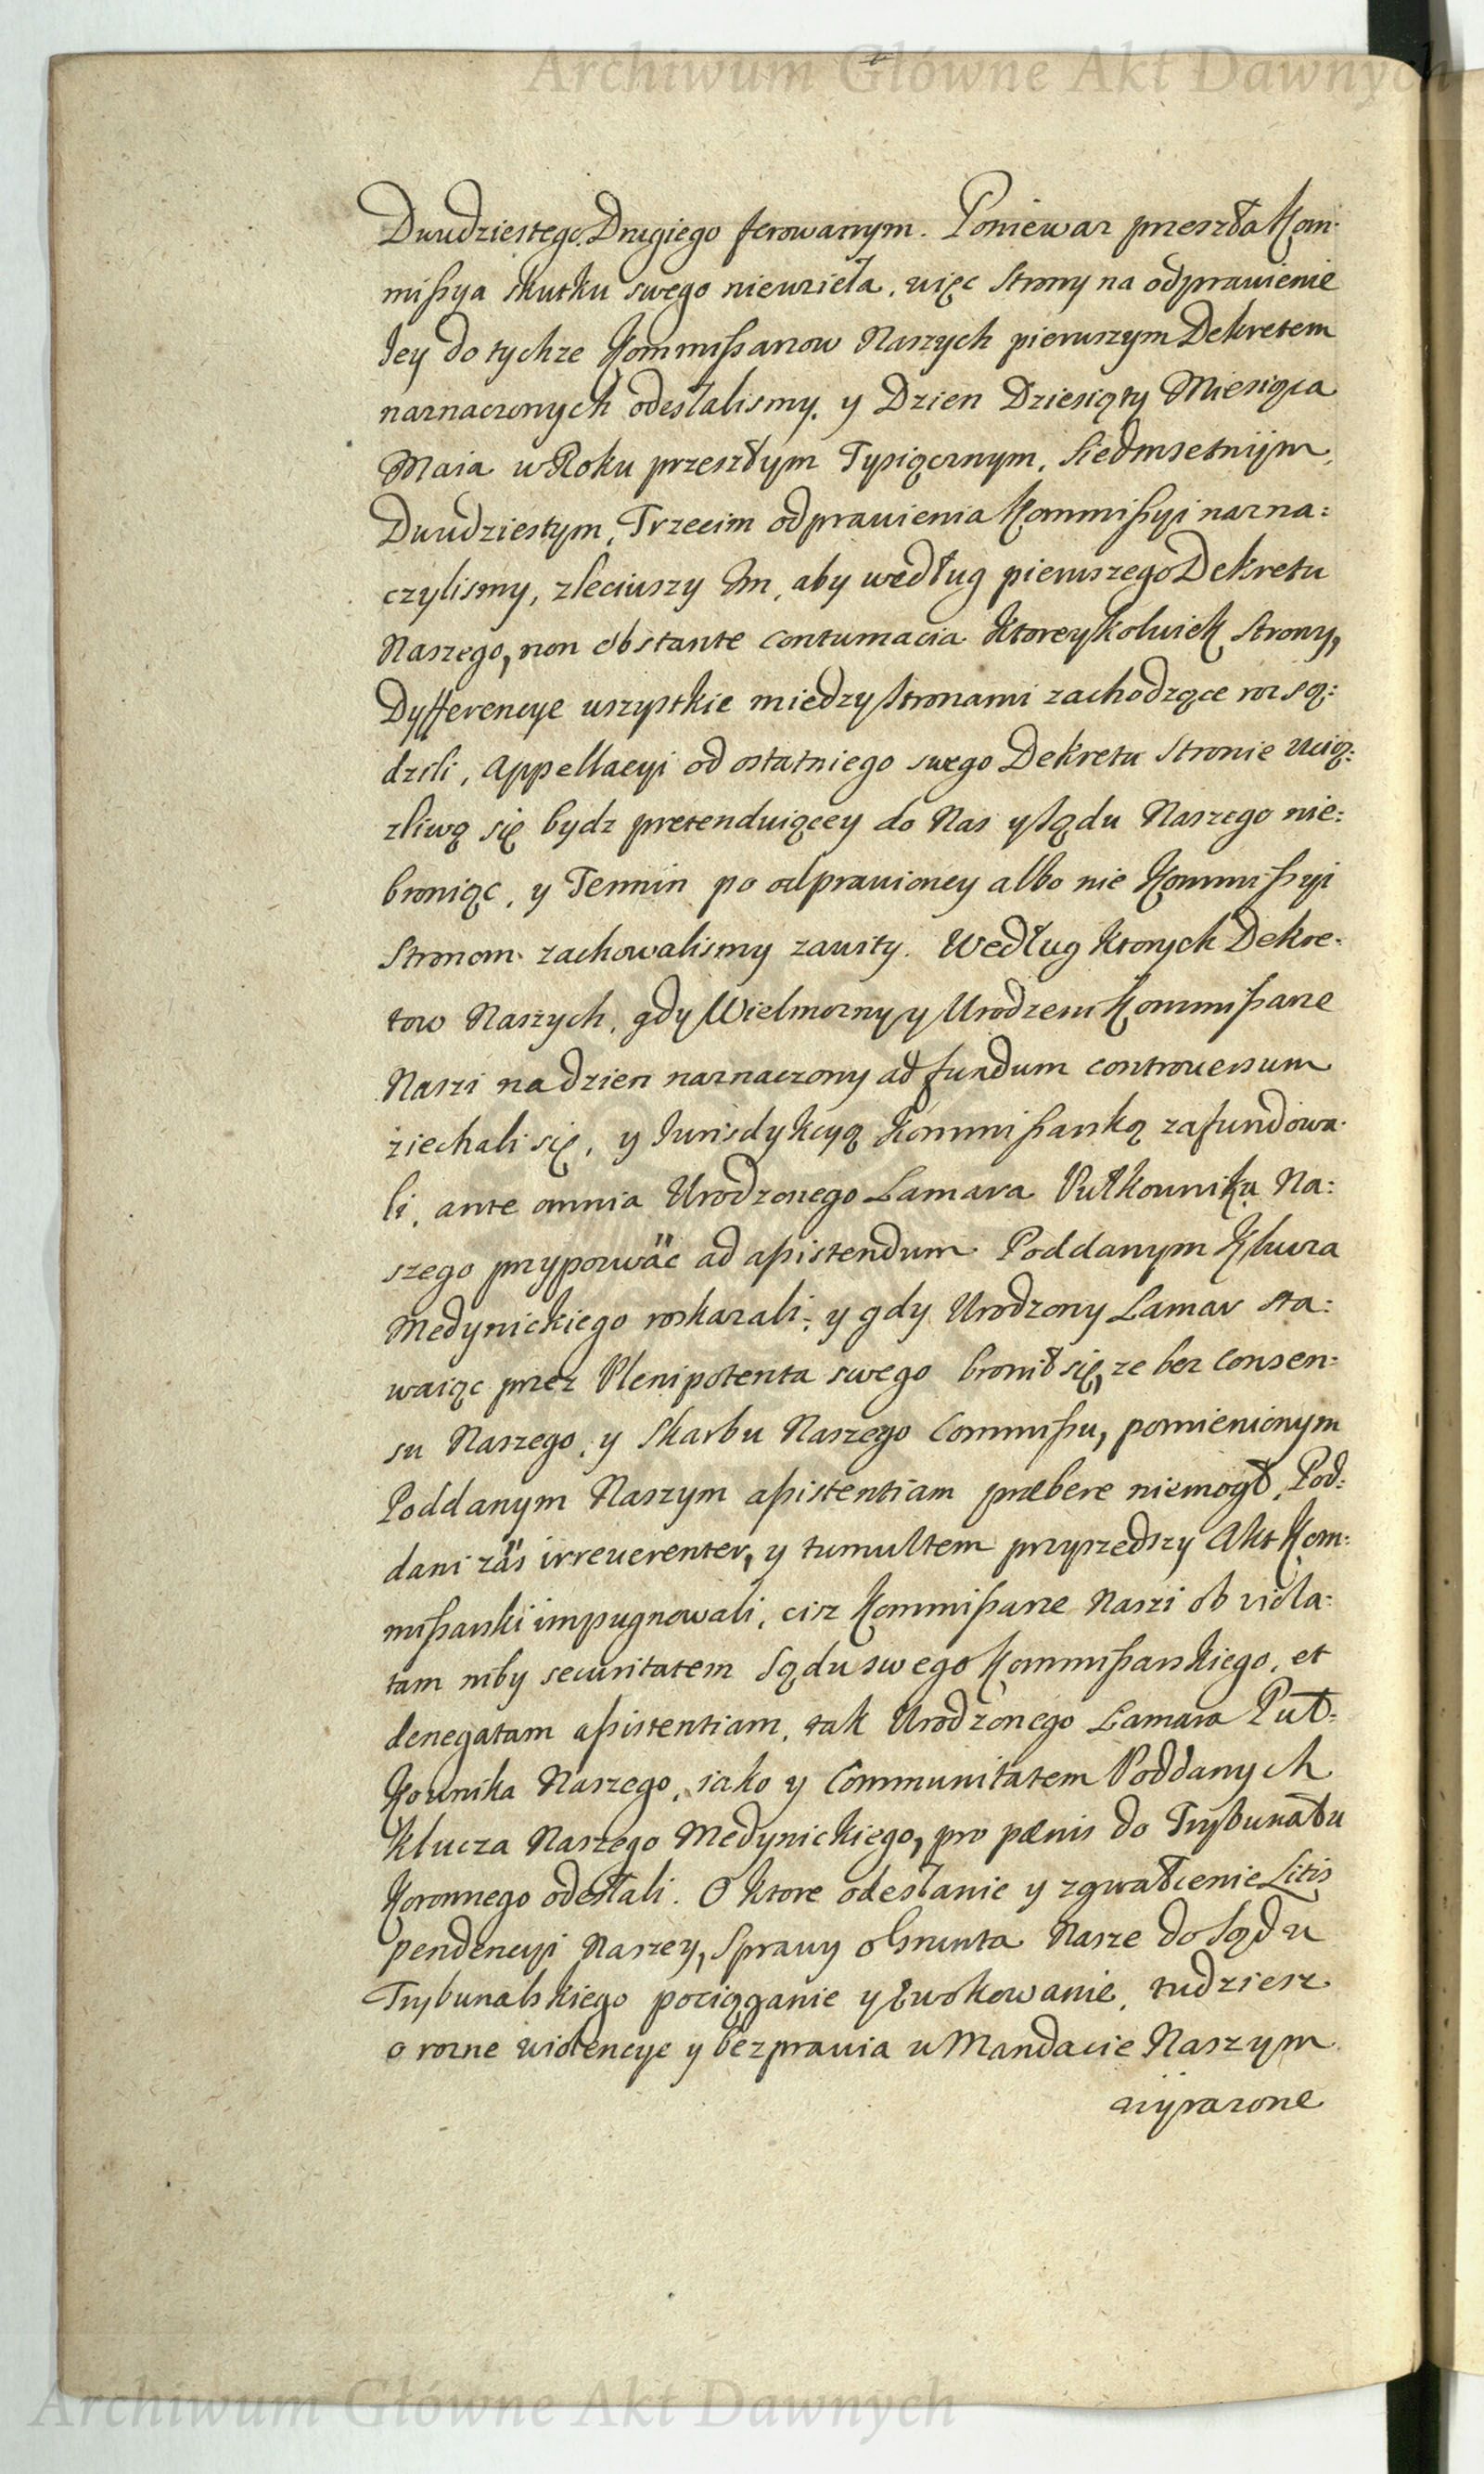 Archiwum Główne Akt Dawnych
Dwudziestego Drugiego ferowanym. Poniewaz przeszła Kom-
mißya skutku swego niewzieła, więc Strony na odprawienie
Iey do tychze Kommißarzow Naszych pierwszym Dekretem
naznaczonych odesłalismy, y Dzien Dziesiąty Miesiąca
Maia w Roku przeszłym Tysiącznym, Siedmsetnym,
Dwudziestym, Trzecim odprawienia Kommißyi nazna:
czylismy, zleciwszy Im, aby według pierwszego Dekretu
Naszego, non obstante contumacia ktoreykolwiek Strony,
Dyfferencye wszystkie między Stronami zachodzące rozsą:
dzili, Appellacyi od ostatniego swego Dekretu Stronie ucią:
zliwą się bydz pretenduiącey do Nas y Sądu Naszego nie:
broniąc, y Termin po odprawioney albo nie Kommißyi
Stronom zachowalismy zawity. Według ktorych Dekre-
tow Naszych, gdy Wielmozny y Urodzeni Kommißarze
Naszi na dzien naznaczony ad fundum controversum
ziechali się, y Iurisdykcyą Kommißarską zafundowa-
li, ante omnia Urodzonego Lamara Pułkownika Na:
szego przypozwać ad aßistendum Poddanym Klucza
Medynickiego roskazali; y gdy Urodzony Lamar sta:
waiąc przez Plenipotenta swego bronił się, ze bez Consen:
su Naszego, y Skarbu Naszego Commißu, pomienionym
Poddanym Naszym aßistentiam præbere niemogł, Pod:
dani zás irreverenter, y tumultem przyszedszy Akt Kom:
mißarski impugnowali, ciz Kommißarze Naszi ob viola:
tam niby securitatem Sądu swego Kommißarskiego, et
denegatam aßistentiam, tak Urodzonego Lamara Puł:
kownika Naszego, iako y Communitatem Poddanych
Klucza Naszego Medynickiego, pro pœnis do Trybunału
Koronnego odesłali. O ktore odesłanie y zgwałcenie Litis
pendencyi Naszey, Sprawy o Grunta Nasze do Sądu
Trybunalskiego pociąganie y Ewokowanie, tudziesz
o rozne violencye y bezprawia w Mandacie Naszym
wyrazone
Archiwum Główne Akt Dawnych